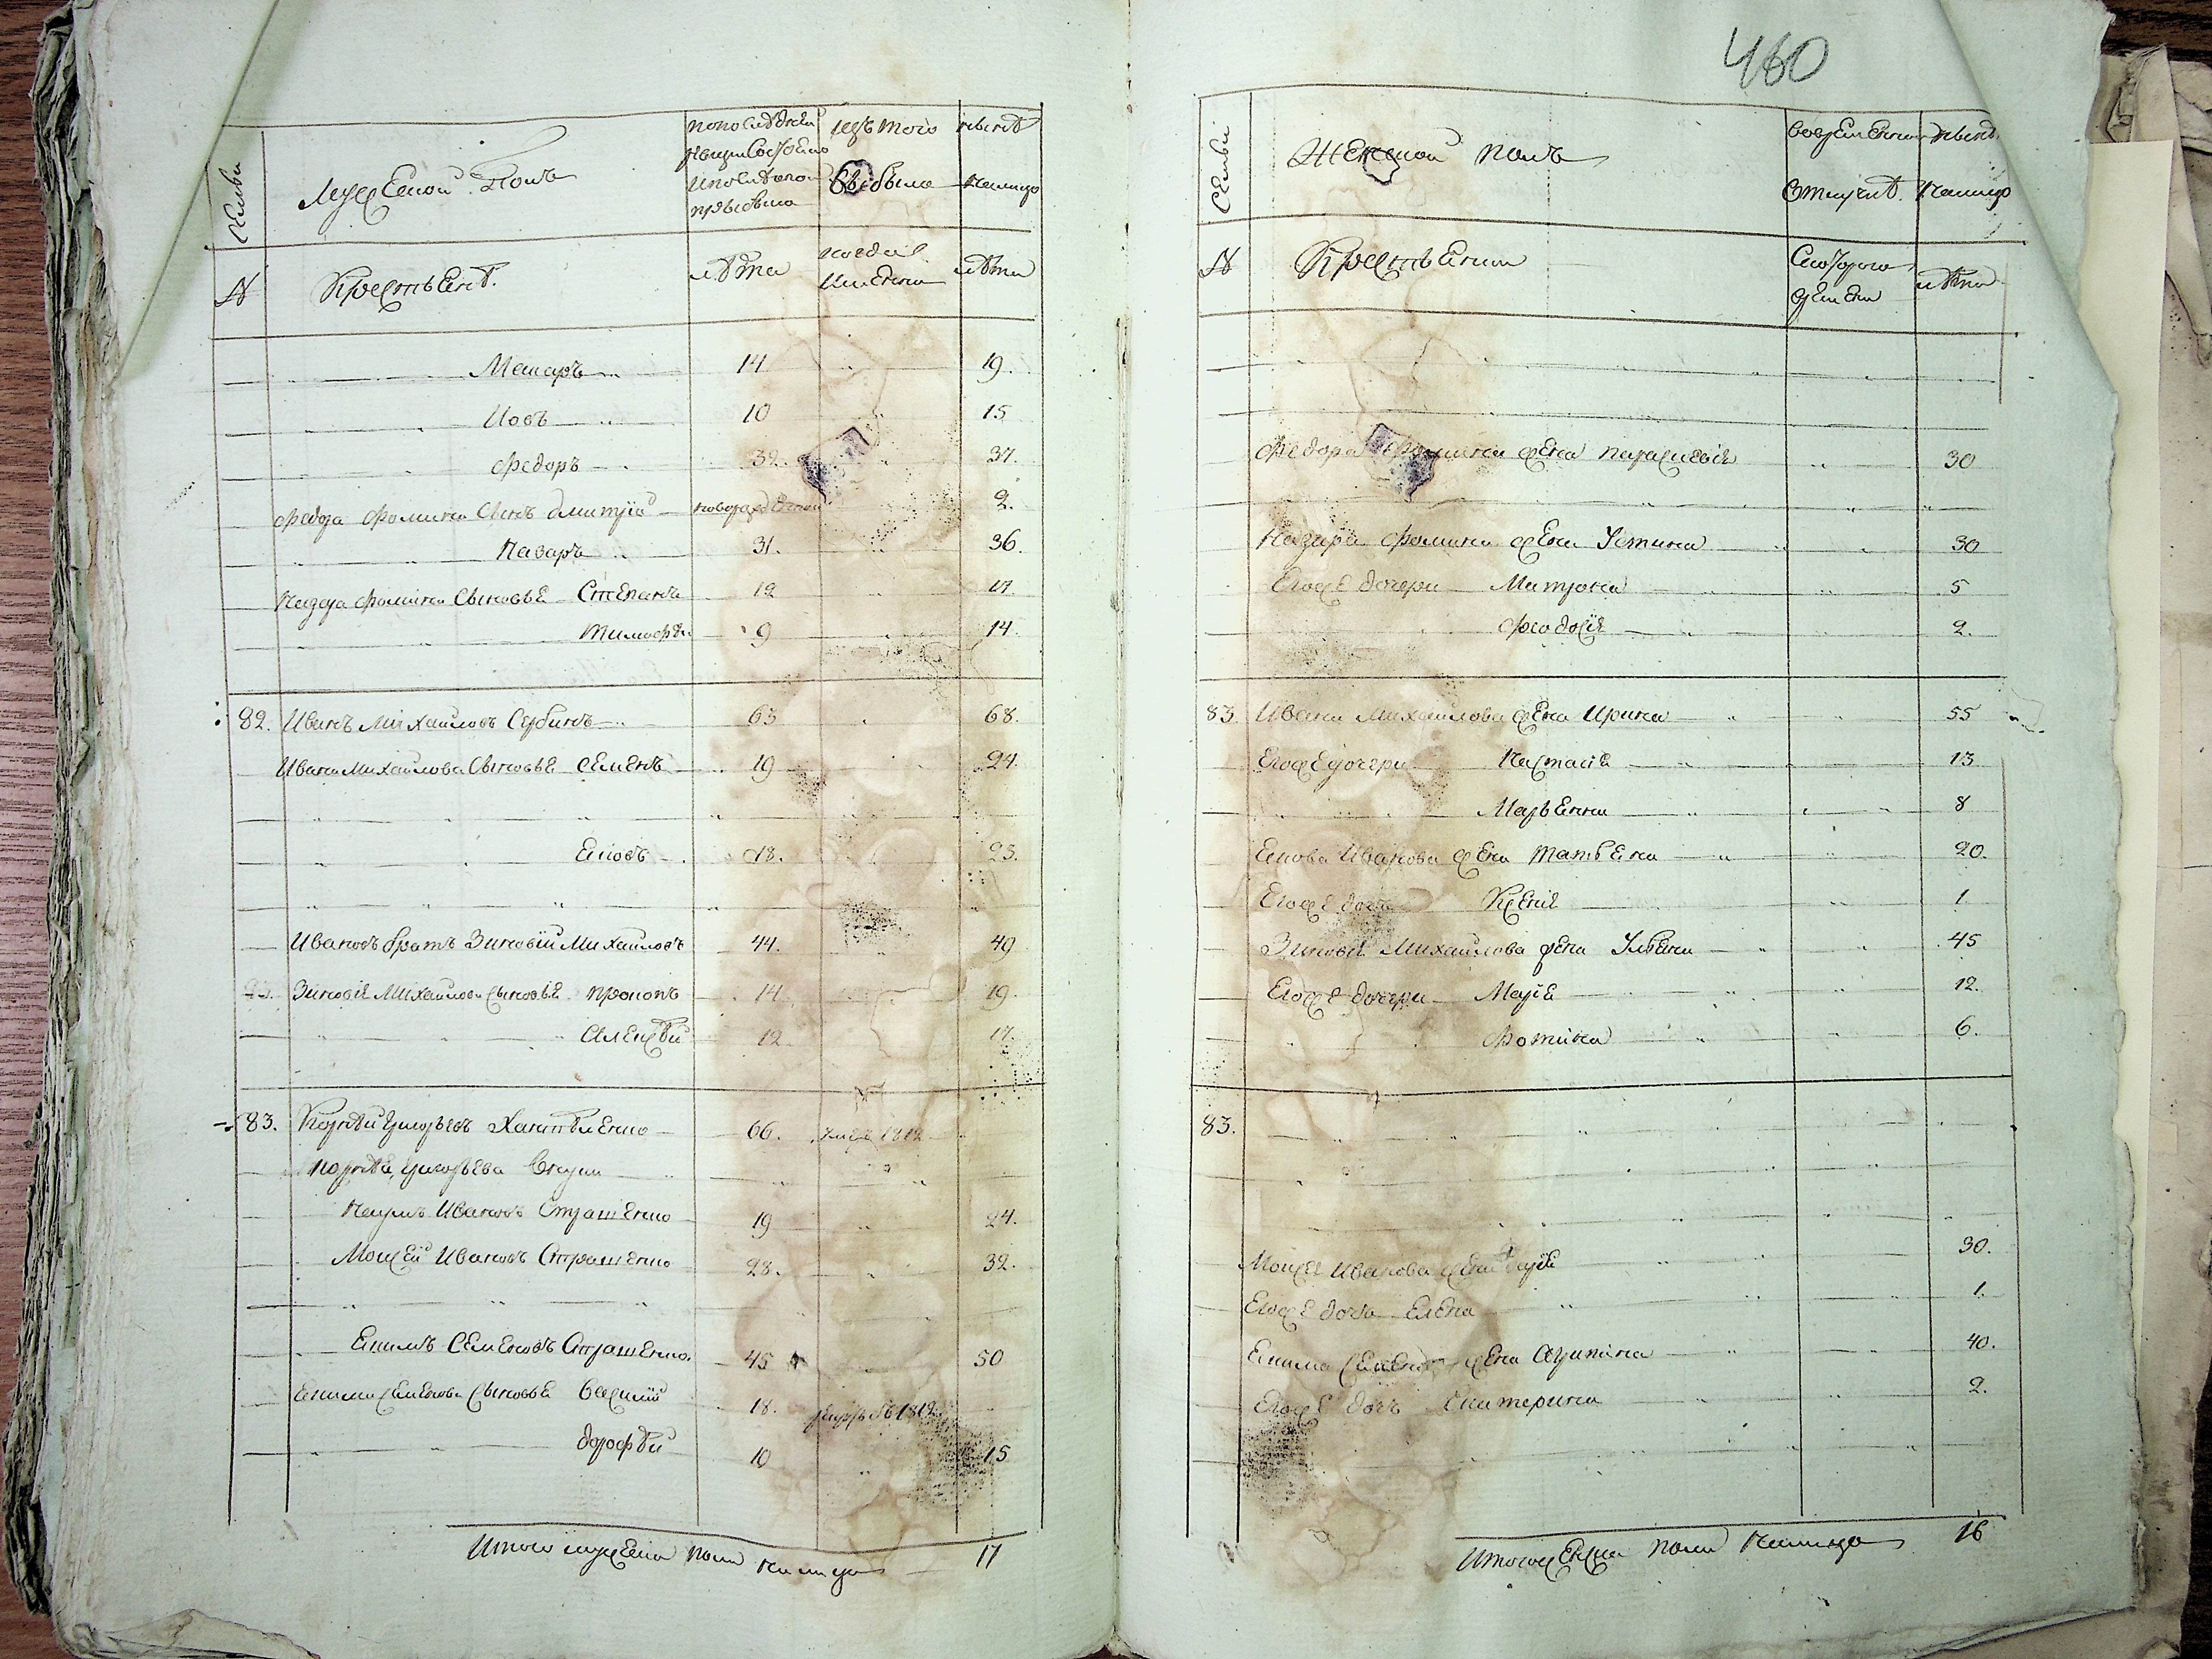 460
Семьи
Мужеской Полъ
по последней
ревизии состояло
и после оной
прибыло
изъ того
выбыло
ныне
налицо
№
Крестьянѣ.
лѣта
когда
именно
лѣта
Макаръ 14 19.
Иовъ 10 15
Федоръ 32. 37.
Федора Фомина сынъ Дмитрій новорожденной 2.
Назаръ 31. 36.
Назара Фомина сыновья Степанъ 12 17
Тимофѣй 9 14
82. Иванъ Михайловъ Сербинъ 63 68.
Ивана Михайлова сыновья Семенъ 19 24.
Яковъ 18. 23.
Ивановъ братъ Зиновій Михайловъ 44. 49
Зиновія Михайлова сыновья Прокопъ 14 19
Алексѣй 12 17.
83. Корнѣй Григорьевъ 66. умер 1812
Корнѣя Григорьева внуки
Наумъ Ивановъ Страшенко 19 24.
Мокѣй Ивановъ Страшенко 28. 32.
Екимъ Семеновъ Страшенко. 45 50
Екима Семенова сыновья Василій 18. 1812
Дорофѣй 10 15
Итого мужеска пола налицо 17
Семьи
Женской полъ
во временной
отлучкѣ.
ныне
налицо
№
Крестьянки
съ которого
времени
лѣта
Федора Фомина жена Параскевія 30
Назара Фомина жена Устина 30
Егоже дочери Матрона 5
Феодосія 2.
83. Ивана Михайлова жена Ирина 55
Егоже дочери Настасія 13
Марьяна 8
Якова Иванова жена Татьяна 20.
Егоже дочь Ксенія 1
Зиновія Михайлова жена Ульяна 45
Егоже дочери Марія 12.
Фотина 6.
83.
Мокѣя Иванова жена 30.
Егоже дочь Елена 1.
Екима Семенова жена Агрипина 40.
Егоже дочь Екатерина 2.
Итого женска пола налицо 16